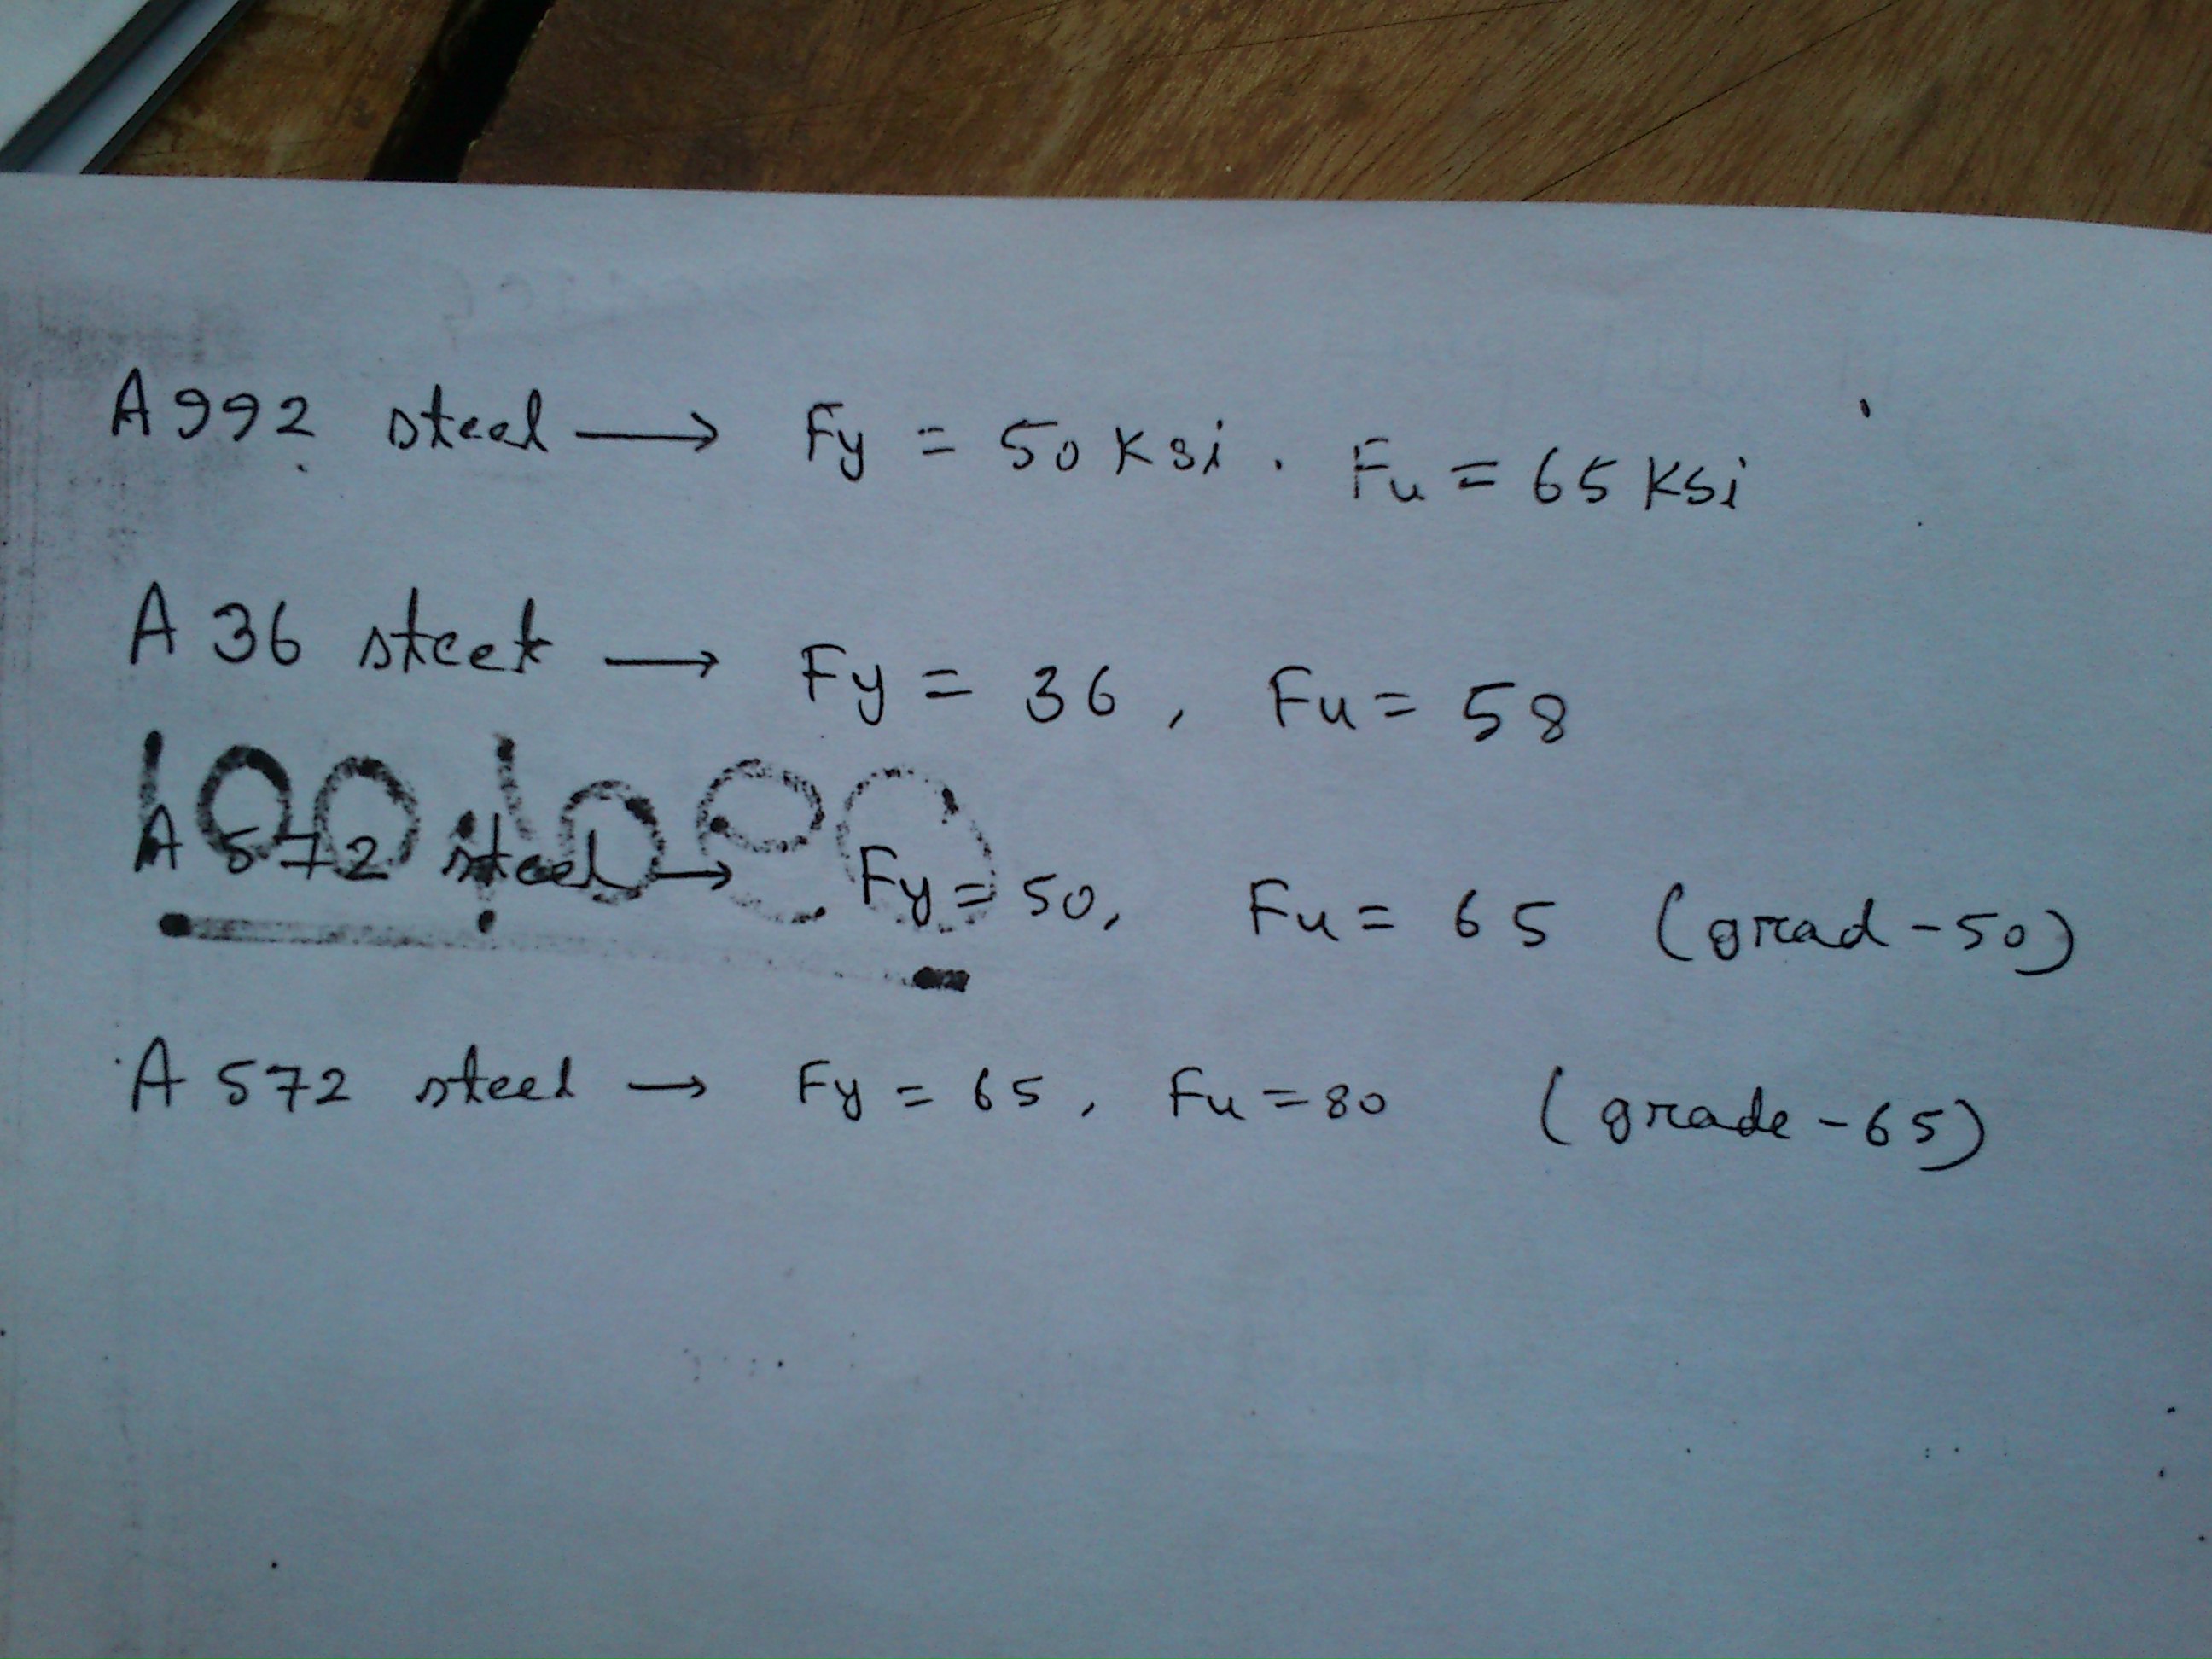 A992 steel → Fy = 50 Ksi. Fu = 65 Ksi
A 36 steel → Fy = 36, Fu = 58
A 572 steel → Fy = 50, Fu = 65 (grad-50)
A 572 steel → Fy = 65, Fu = 80 (grade-65)